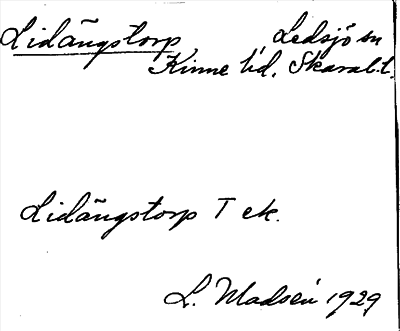 Lidängstorp, Ledsjö sn
Kinne hd, Skarab.l.
Lidängstorp T ek.
L. Madsén 1929